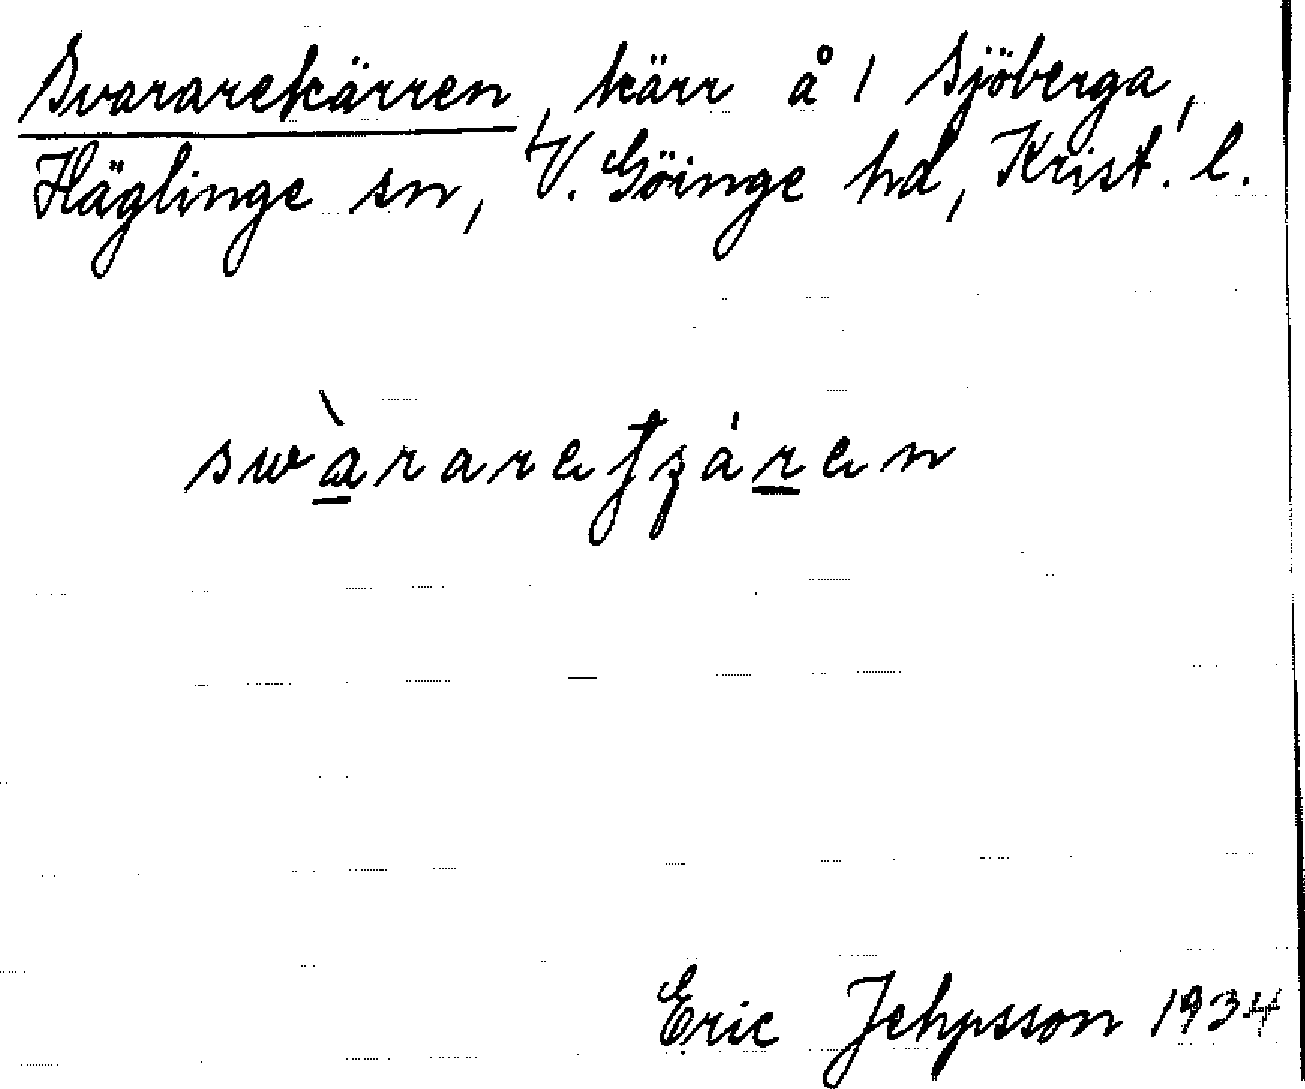 Svararekärren, kärr å 1 Sjöberga,
Häglinge sn, V. Göinge hd, Krist. l.
Eric Jehpsson 1934